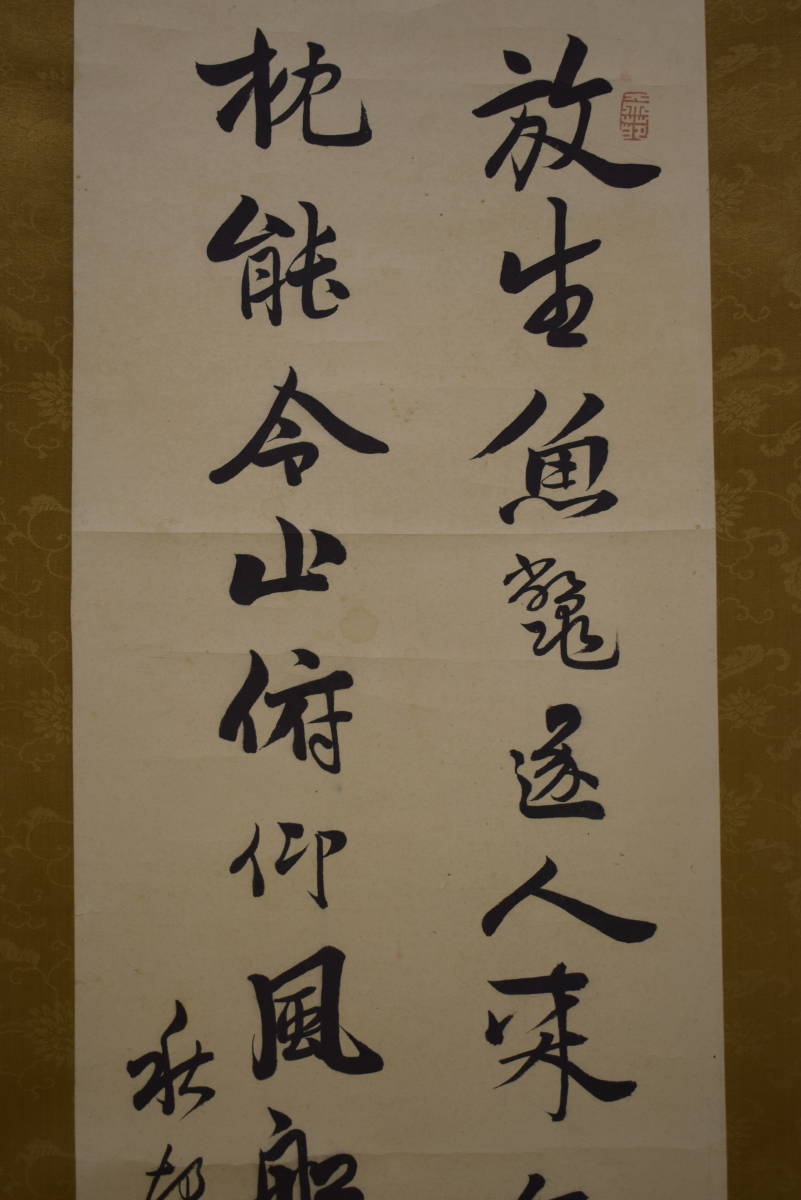 放生魚鼈逐人来
枕能令山俯仰風船
秋